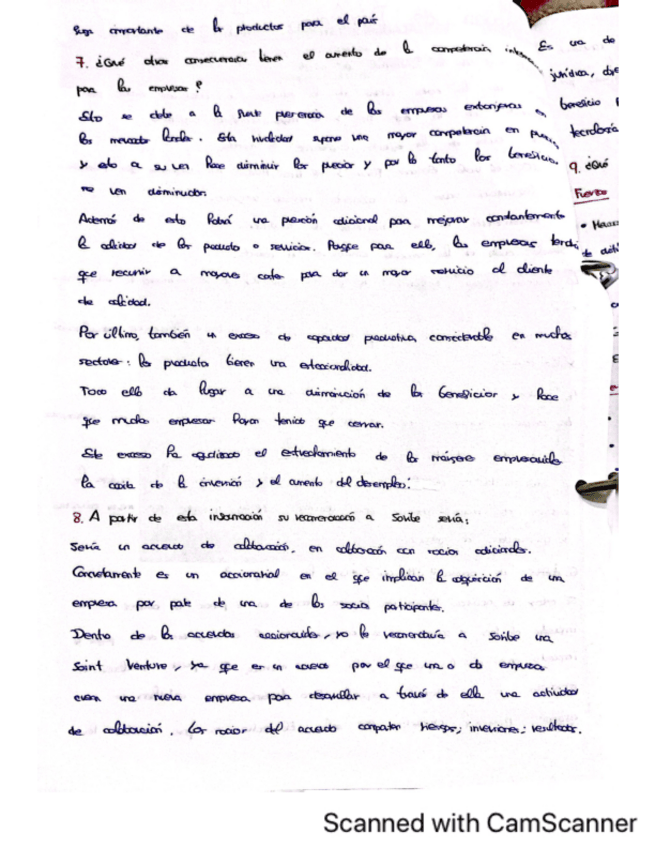 importante de los productos para el país
7. ¿Qué otras consecuencias tienen el aumento de la competencia
para las empresas?
Esto se debe a la fuerte presencia de las empresas extranjeras en
los mercados locales. Esta supone una mayor competencia en
y esto a su vez hace disminuir los precios y por lo tanto los beneficios
se ven disminuidos.
Además de esto habrá una presión adicional para mejorar constantemente
la calidad de los productos o servicios. Porque para ello, las empresas
que recurrir a mayores costes para dar un mayor servicio al cliente
de calidad.
Por último, también un exceso de capacidad productiva, considerable en muchos
sectores: los productos tienen una estacionalidad.
Todo ello da lugar a una disminución de los beneficios y hace
que muchas empresas hayan tenido que cerrar.
Este exceso ha agudizado el estrechamiento de los márgenes empresariales
la caída de la inversión y el aumento del desempleo.
8. A partir de esta información su recomendación a Soribe sería:
Sería un acuerdo de colaboración, en colaboración con socios adicionales.
Concretamente es un accionarial en el que implican la adquisición de una
empresa por parte de una de los socios participantes.
Dentro de los acuerdos accionariales, yo le recomendaría a Soribe una
Joint Venture, ya que es un acuerdo por el que una o dos empresas
crean una nueva empresa para desarrollar a través de ella una actividad
de colaboración. Los socios del acuerdo comparten riesgos; inversiones; resultados.
Es una de
jurídica, de
beneficio
tecnología
9. ¿Qué
Scanned with CamScanner